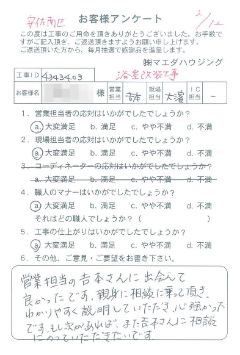 安佐南区
お客様アンケート
2/12
この度は工事のご用命を頂きありがとうございました。お手数で
すがご記入頂き、ご返送頂きますようお願い申し上げます。
ご返送頂いた方から、毎月抽選で感謝品を進呈します。
㈱マエダハウジング
工事ID
浴室改装工事
お客様名
様
営業担当
吉本
現場担当
1. 営業担当者の応対はいかがでしたでしょうか?
a. 大変満足 b. 満足 c. やや不満 d. 不満
2. 現場担当者の応対はいかがでしたでしょうか?
a. 大変満足 b. 満足 c. やや不満 d. 不満
3. コーディネーターの応対はいかがでしたでしょうか?
a. 大変満足 b. 満足 c. やや不満 d. 不満
4. 職人のマナーはいかがでしたでしょうか?
a. 大変満足 b. 満足 c. やや不満 d. 不満
それはどの職人でしょうか?( )
5. 工事の仕上がりはいかがでしたでしょうか?
a. 大変満足 b. 満足 c. やや不満 d. 不満
6. その他、ご意見・ご要望をお書き下さい。
営業担当の吉本さんに出会えて
良かったです。親身に相談に乗って頂き、
わかりやすく説明していただき、心強かった
です。もし次があれば、また吉本さんに相談
にのっていただきたいです。